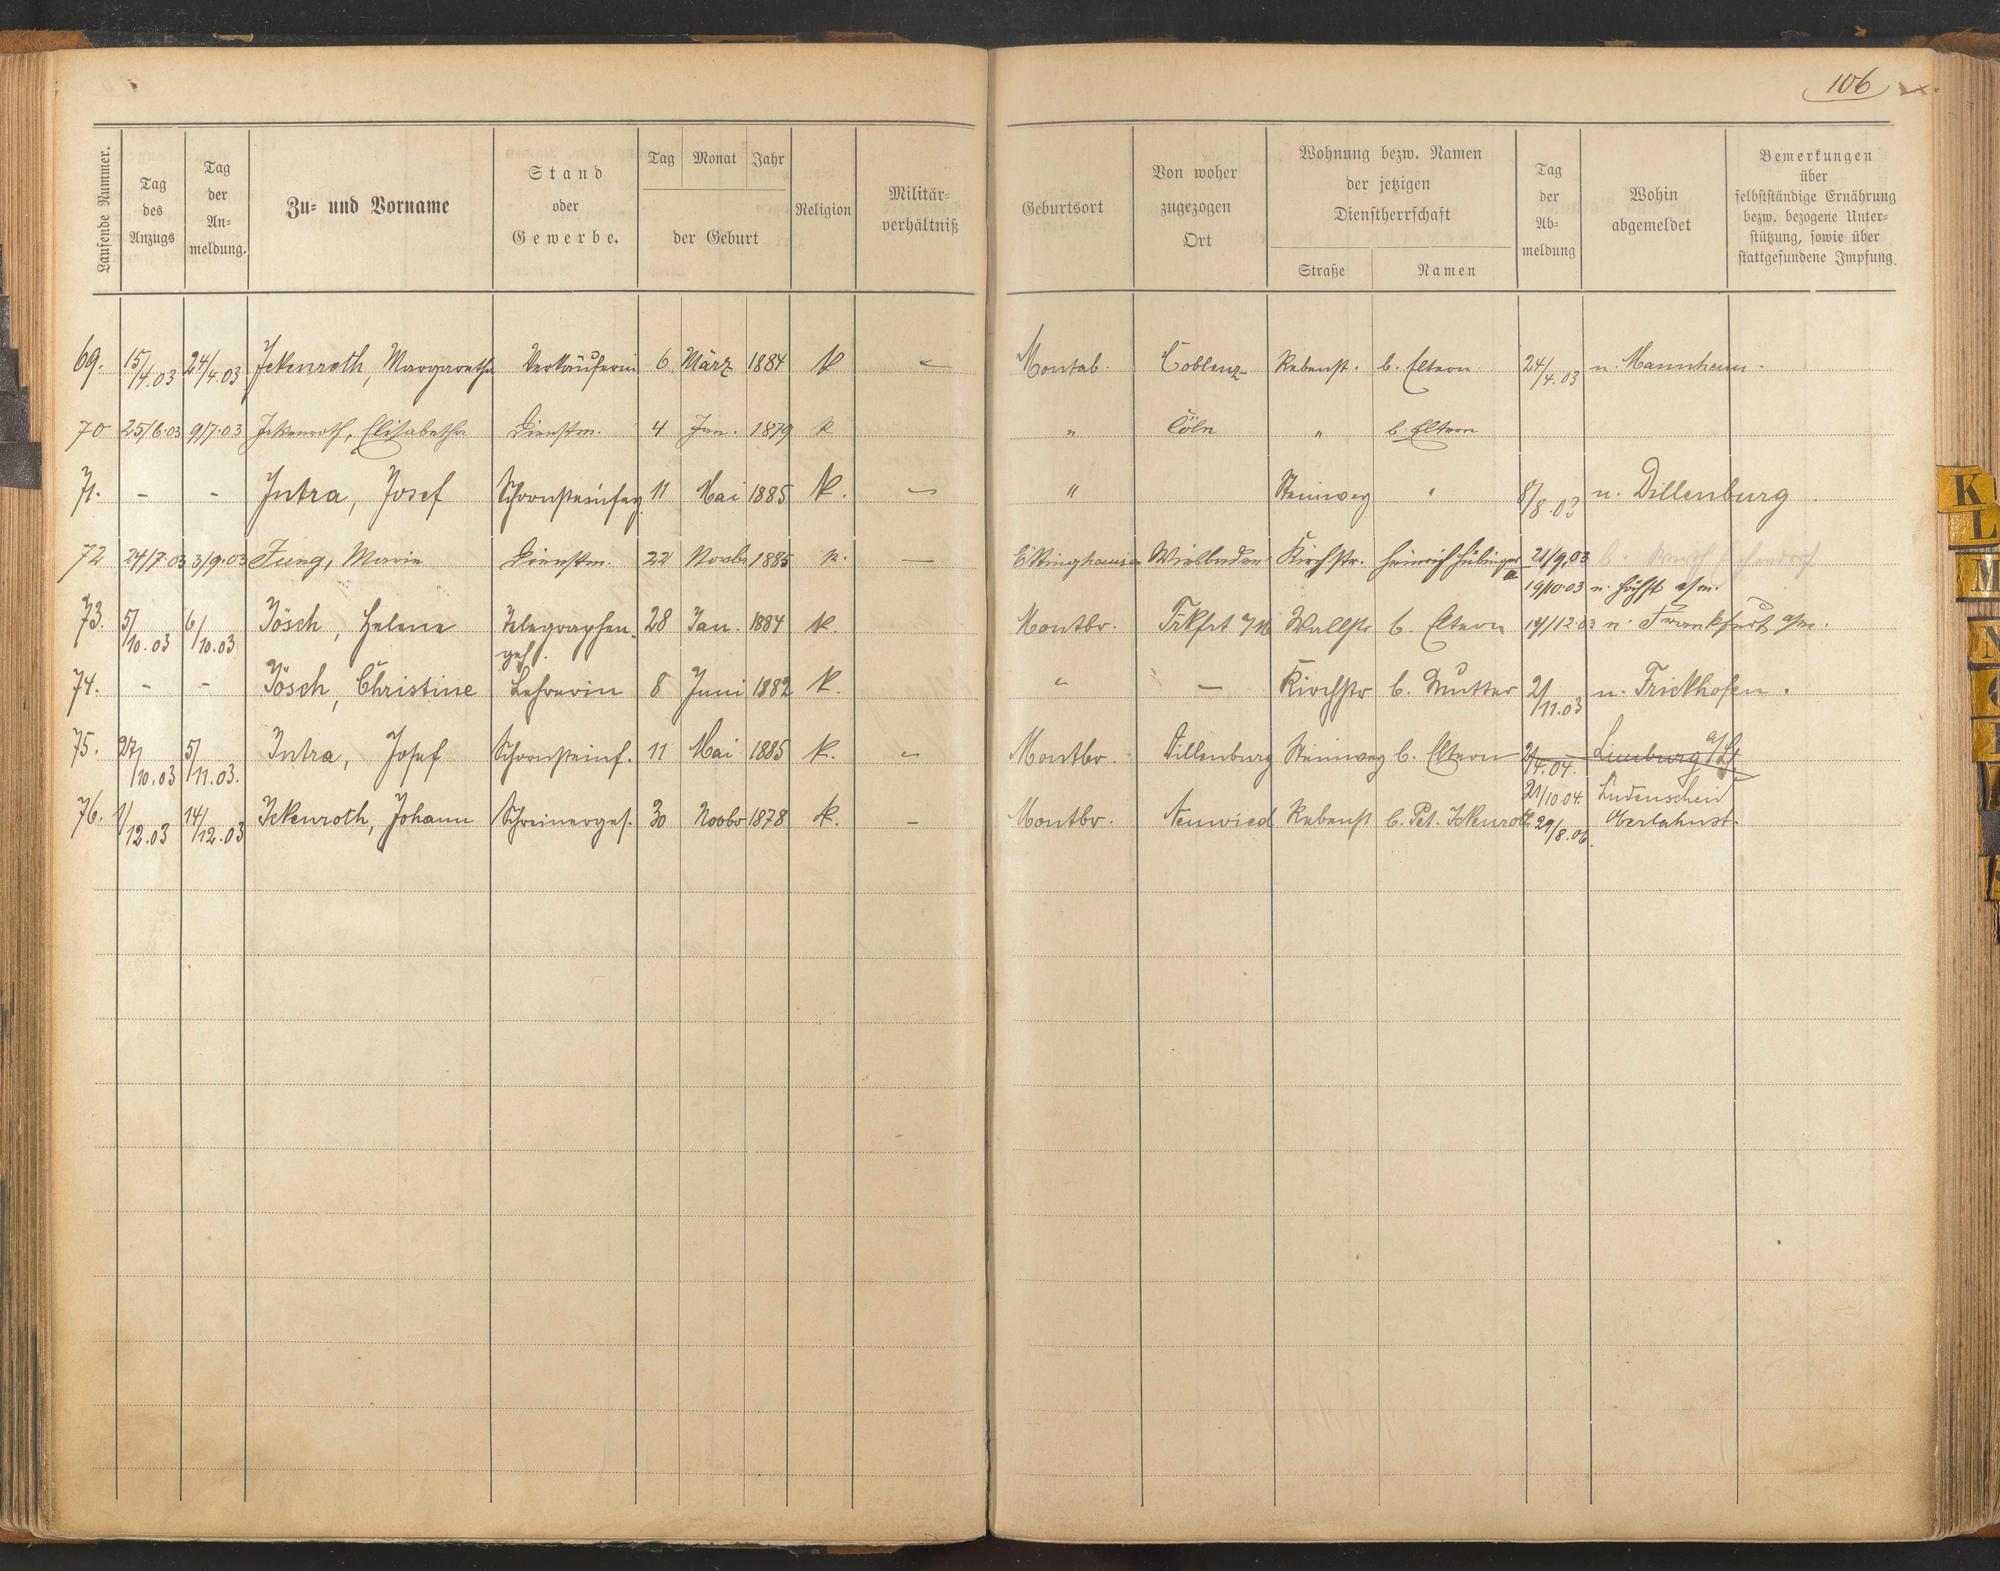 106
Laufende Nummer. Tag des Anzugs Tag der An- meldung. Zu- und Vorname Stand oder Gewerbe. Tag Monat Jahr der Geburt Religion Militär- verhältniß Geburtsort Von woher zugezogen Ort Wohnung bezw. Namen der jetzigen Dienstherrschaft Straße Namen Tag der Ab- meldung Wohin abgemeldet Bemerkungen über selbstständige Ernährung bezw. bezogene Unter- stützung, sowie über stattgefundene Impfung.
69. 15/4.03 24/4.03 Ickenroth, Margaretha Verkäuferin 6 März 1884 K - Montab. Coblenz Rebenst. b. Eltern 24/4.03 n. Mannheim.
70 25/6.03 9/7.03 Ickenroth, Elisabetha Dienstm. 4 Jan. 1879 K " Cöln " b. Eltern
71. - - Intra, Josef Schornsteinfeg. 11 Mai 1885 K. - " Steinweg " 8/8.03 n. Dillenburg
72 24/7.03 3/9.03 Jung, Marie Dienstm. 22 Novbr 1885 K. - Ettinghausen Wiesbaden Kirchstr. Heinrich Hübinger 21/9.03
19/10.03 n. Höchst a/m.
73. 5/10.03 6/10.03 Jösch, Helene Telegraphen- 28 Jan. 1884 K. Montbr. Frkfrt a/M Wallstr b. Eltern 19/12.03 n. Frankfurt a/m.
geh.
74. - - Jösch, Christine Lehrerin 8 Juni 1882 K. " - Kirchstr b. Mutter 2/11.03 n. Frickhofen.
75. 27/10.03 5/11.03. Intra, Josef Schornsteinf. 11 Mai 1885 K. - Montbr. Dillenburg Steinweg b. Eltern 2/4.04. Limburg a/L
21/10.04. Lüdenscheid
76. 1/12.03 14/12.03 Ickenroth, Johann Schreinerges. 30 Novbr 1878 K. - Montbr. Neuwied Rebenst b. Pet. Ickenroth 29/8.06. Oberlahnst.
K
L
M
N
O
P
S